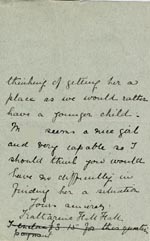 thinking of getting her a
place as we would rather
have a younger child.
M seems a nice girl
and very capable so I
should think you would
have no difficulty in
finding her a situation
Yours sincerely
Katharine Hill Hall
£3 15 for this quarter